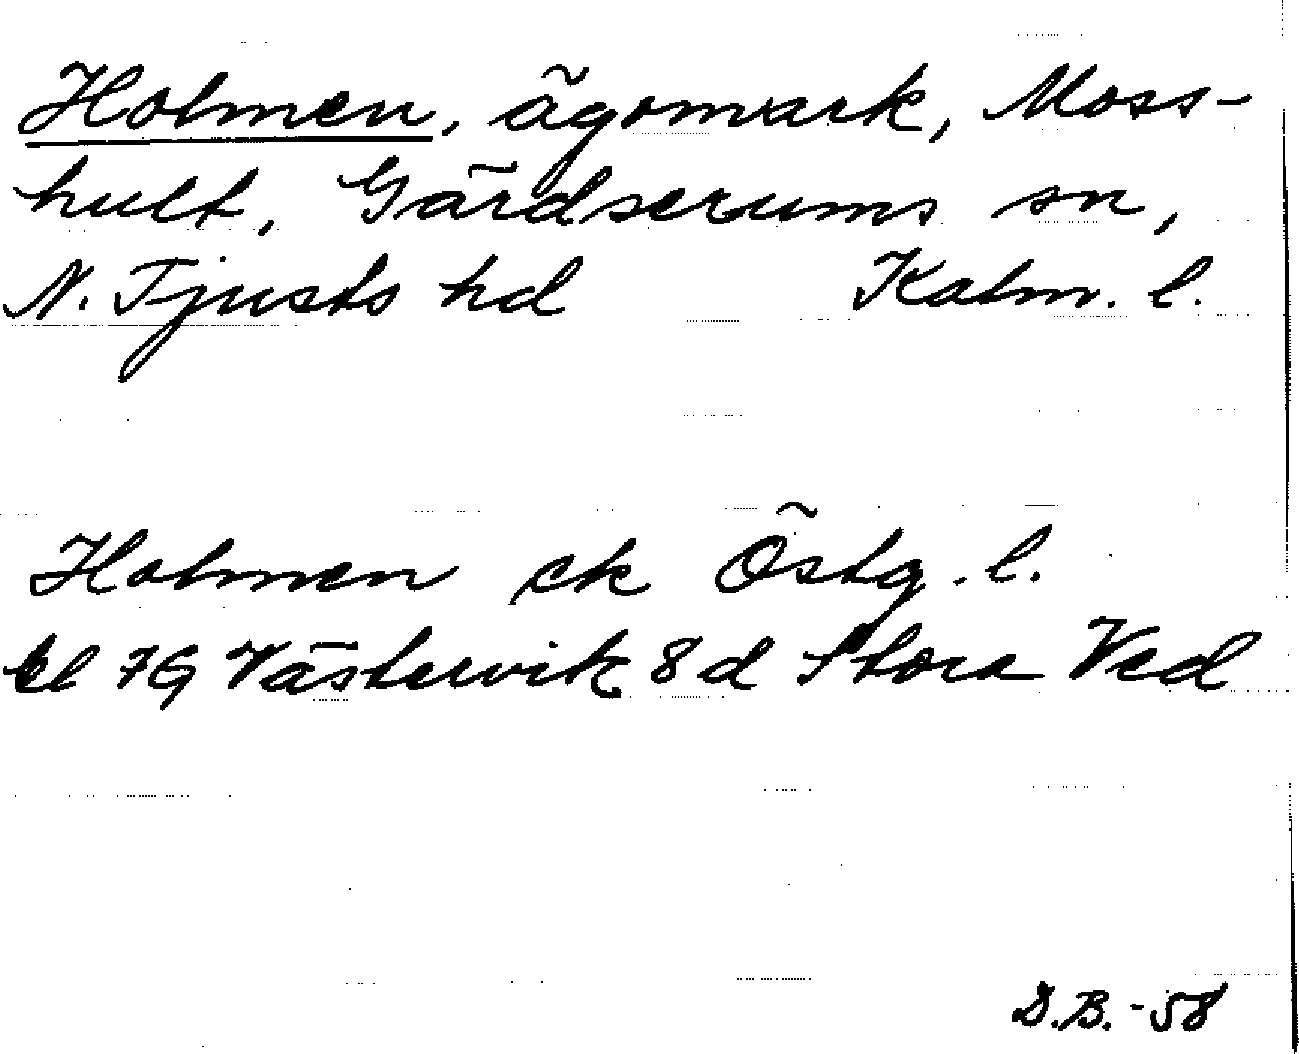 Holmen, ägomark, Moss-
hult, Gärdserums sn,
N. Tjusts hd Kalm. l.
Holmen ek Östg. l.
bl 7G Västervik 8d Stora Ved
D.B. -58